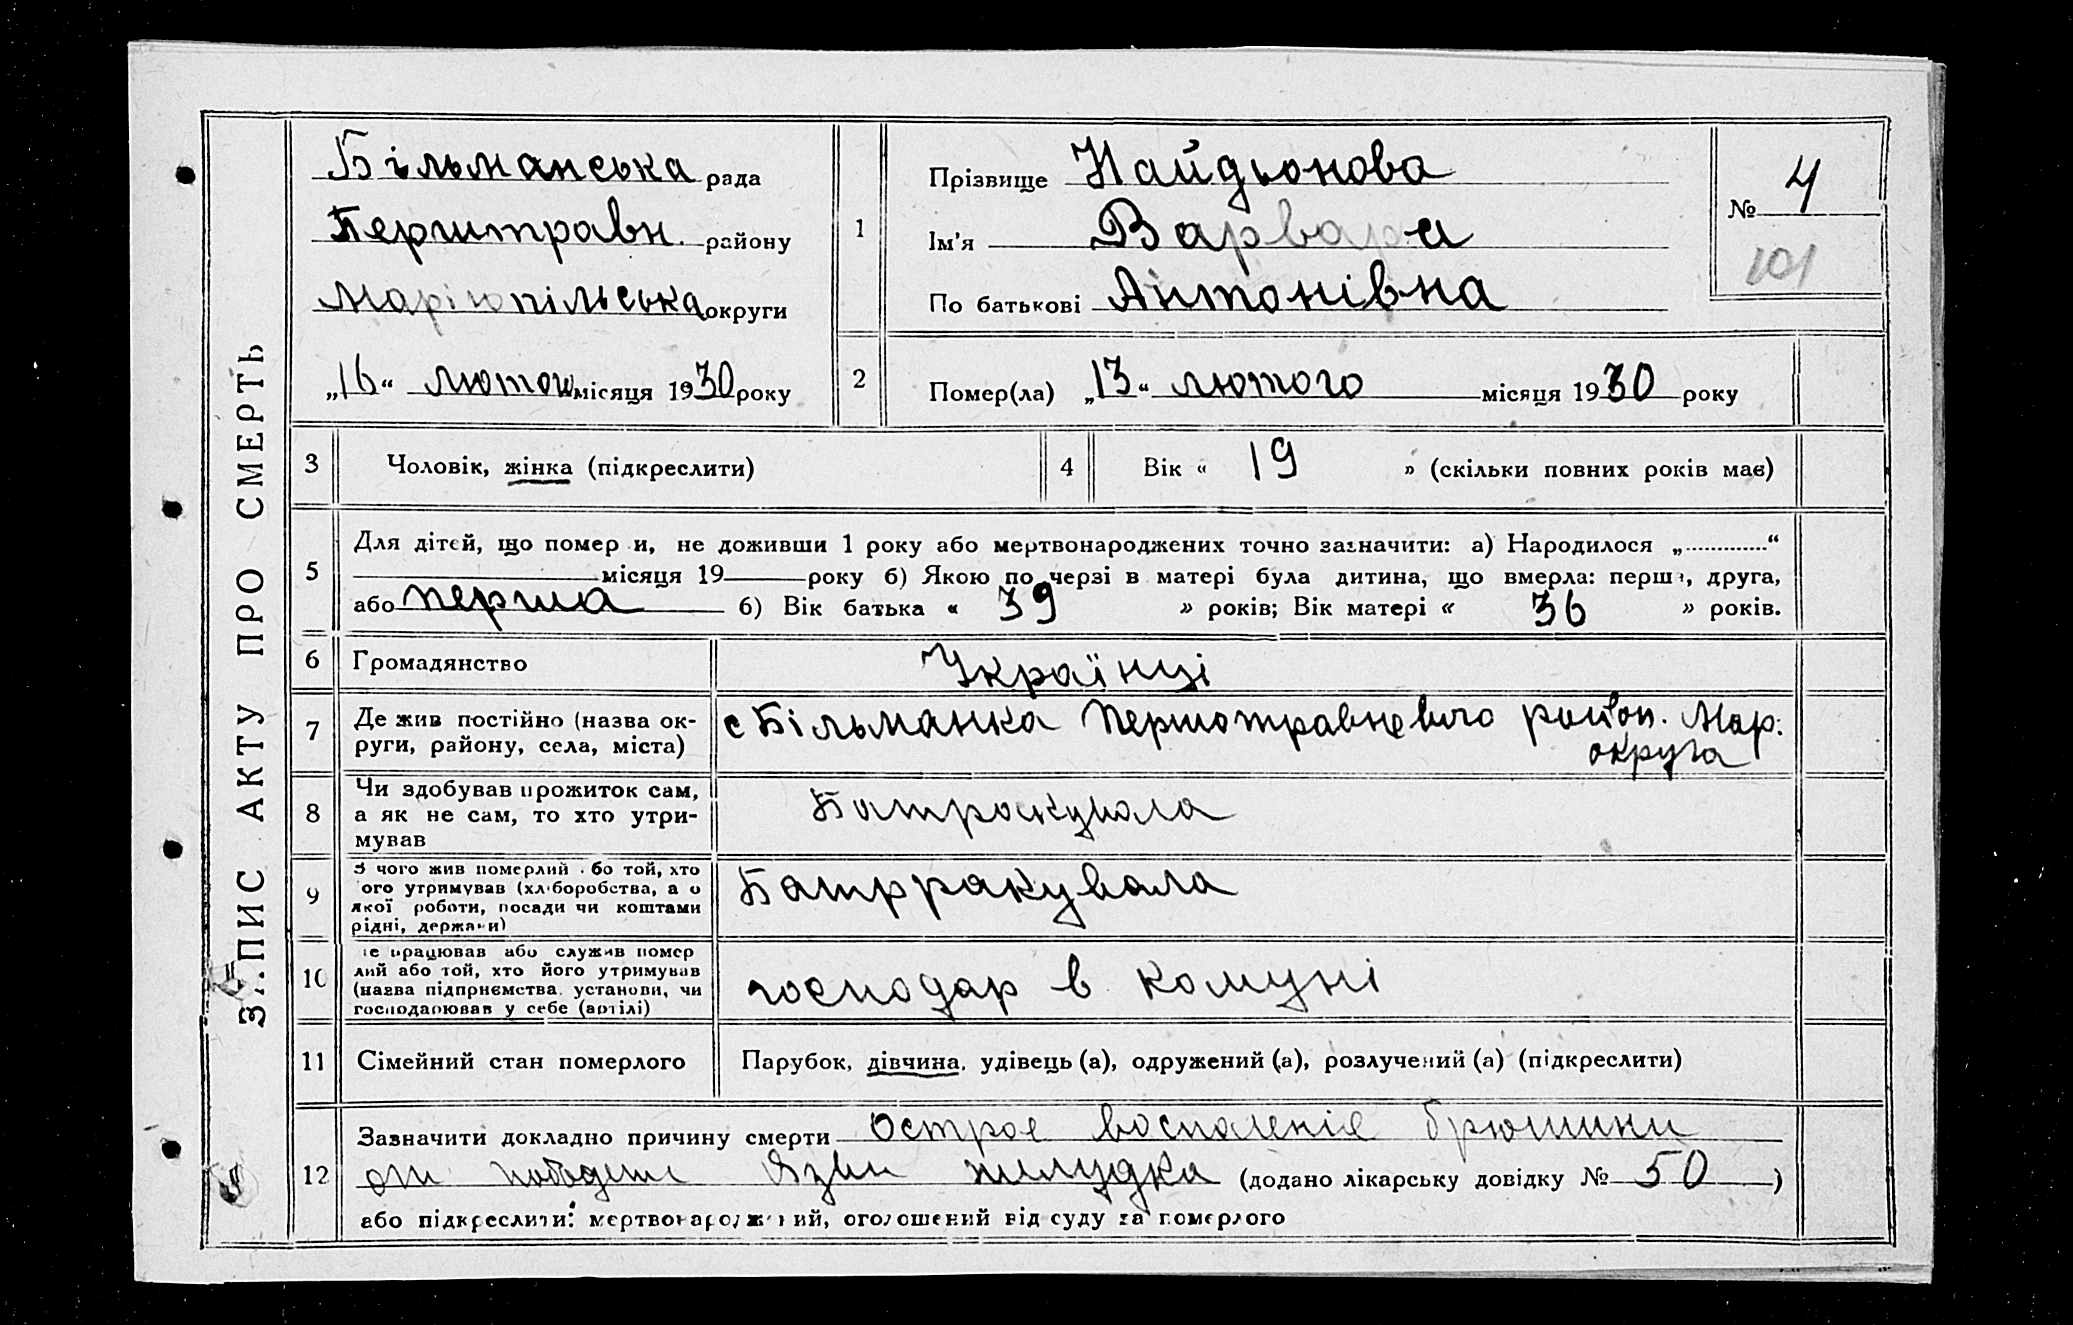 ЗАПИС АКТУ ПРО СМЕРТЬ
Більманська рада
Перштравн. району
Маріюпільська округи
„16“ лютого місяця 1930 року
1
Прізвище Найдьонова
Ім’я Варвара
По батькові Антонівна
№ 4
101
2
Помер(ла) „13“ лютого місяця 1930 року
3 Чоловік, жінка (підкреслити)
4 Вік « 19 » (скільки повних років має)
5
Для дітей, що помер и, не доживши 1 року або мертвонароджених точно зазначити: а) Народилося „............“
місяця 19 року б) Якою по черзі в матері була дитина, що вмерла: перша, друга,
або перша б) Вік батька « 39 » років; Вік матері « 36 » років.
6 Громадянство Українці
7
Де жив постійно (назва ок-
руги, району, села, міста)
с Більманка Першотравневого район. Мар.
округа
8
Чи здобував прожиток сам,
а як не сам, то хто утри-
мував
Батракувала
9
З чого жив померлий або той, хто
ого утримував (хліборобства, а о
якої роботи, посади чи коштами
рідні, держави)
Батрракувала
10
е працював або служив помер
лий або той, хто його утримував
(назва підприємства, установи, чи
господарював у себе (артілі)
господар в комуні
11 Сімейний стан померлого Парубок, дівчина, удівець (а), одружений (а), розлучений (а) (підкреслити)
12
Зазначити докладно причину смерти Острое воспаленіе брюшини
от язви желудка (додано лікарську довідку № 50)
або підкреслити: мертвонароджений, оголошений від суду за померлого